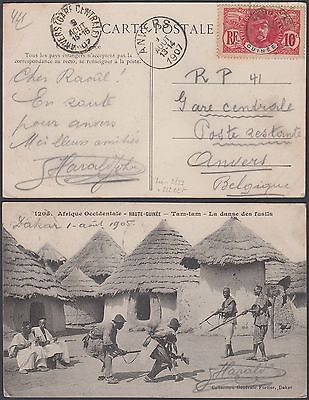 441
CARTE POSTALE
ANVERS (GARE CENTRALE)
ANVERS
14
1907
RF
GUINÉE
10
Tous les pays étrangers n'acceptent pas la
correspondance au recto, se renseigner à la poste.
Cher Raoul!
En santé
pour anvers
Meilleurs amitiés
R P 41
Gare centrale
Poste restante
Anvers
Belgique
1205. Afrique Occidentale - HAUTE-GUINÉE - Tam-tam - La danse des fusils
Dakar 1 - août 1905
Collection Générale Fortier, Dakar